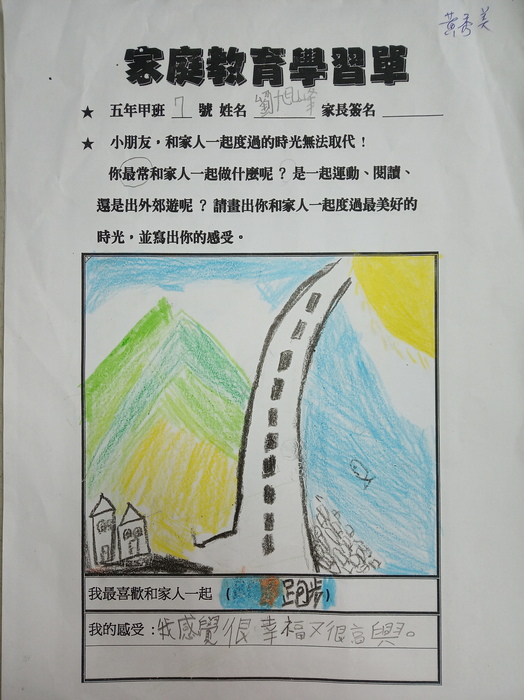 黃秀美
家庭教育學習單
★ 五年甲班 7 號 姓名 劉旭峰 家長簽名
★ 小朋友,和家人一起度過的時光無法取代!
你最常和家人一起做什麼呢?是一起運動、閱讀、
還是出外郊遊呢?請畫出你和家人一起度過最美好的
時光,並寫出你的感受。
我最喜歡和家人一起 ( 跑步 )
我的感受:我感覺很幸福又很高興。